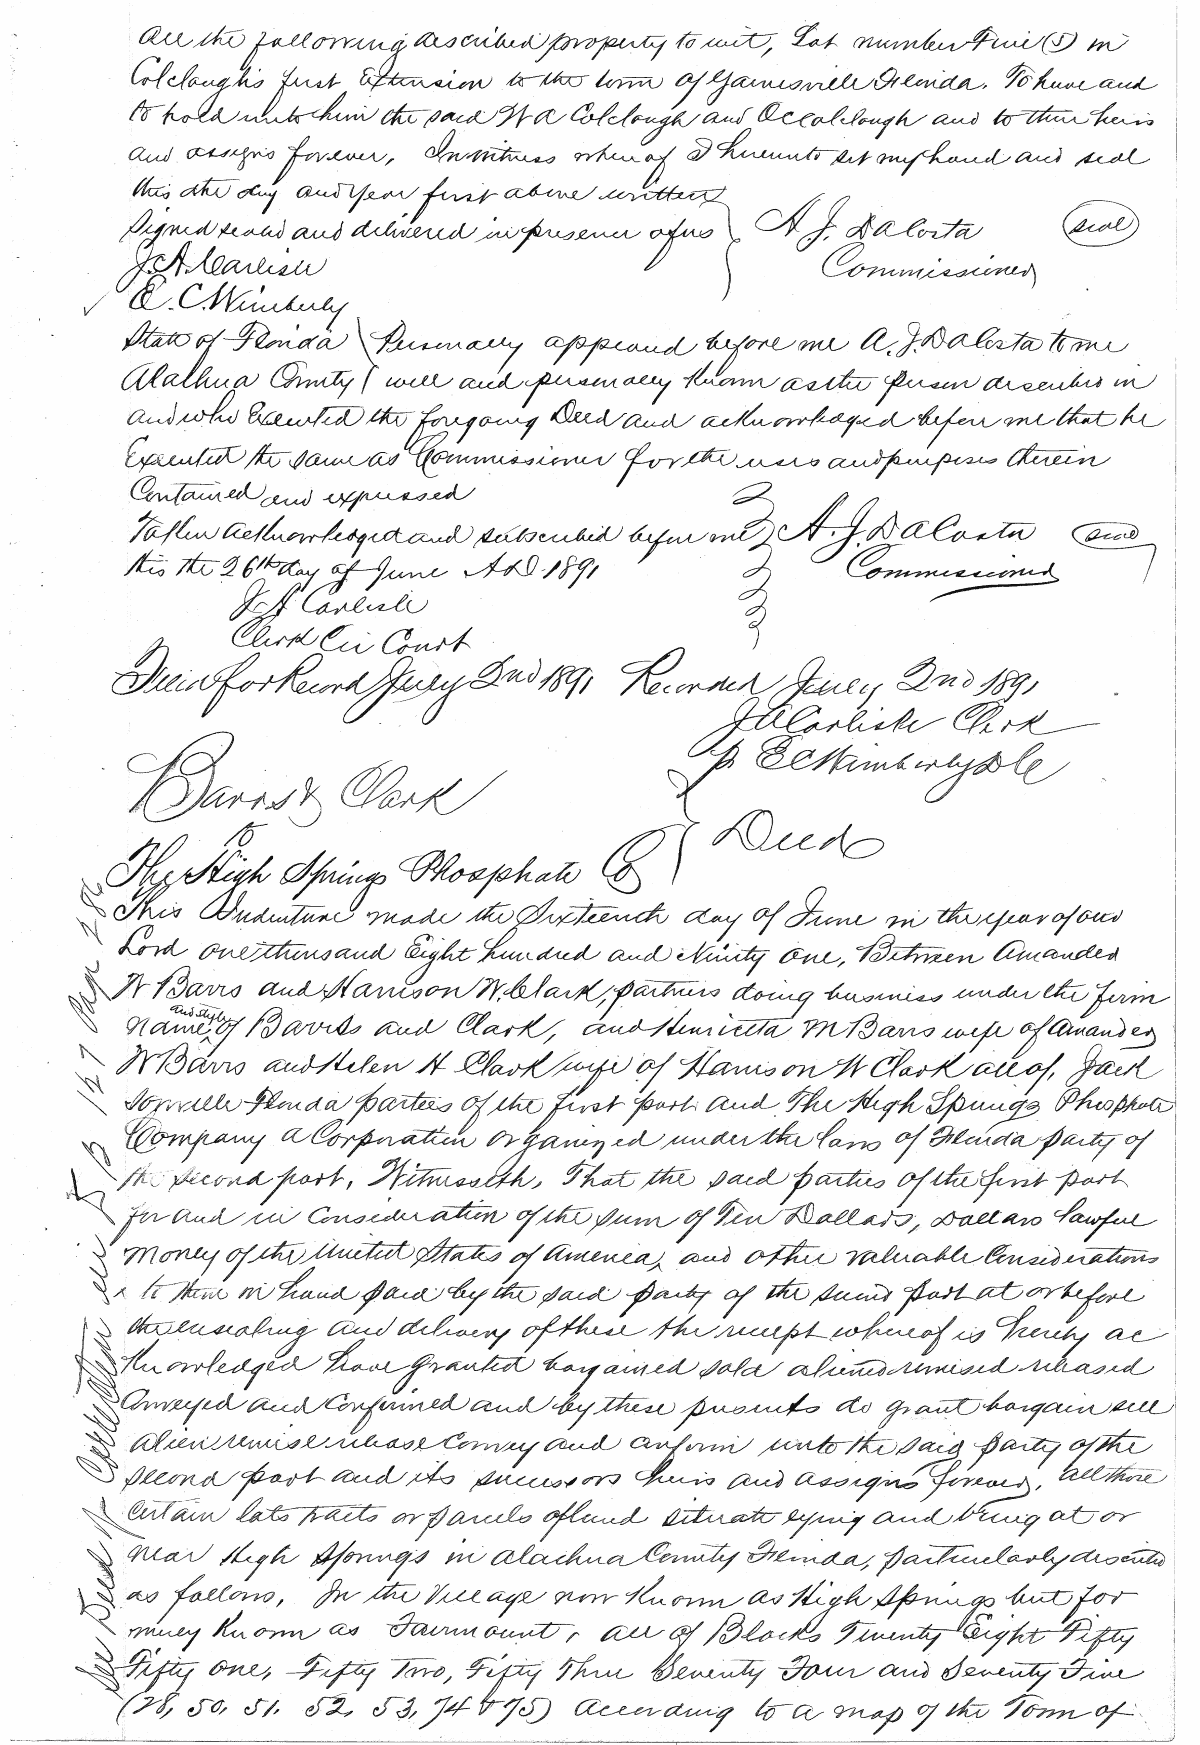 All the following described property to wit, Lot number Five (5) in
Colcloughs first Extension to the town of Gainesville Florida. To have and
to hold unto him the said W A Colclough and O C Colclough and to their heirs
and assigns forever, In witness where of I hereunto set my hand and seal
this the day and year first above written
Signed sealed and delivered in presence of us A. J. DaCosta seal
J. A. Carlisle Commissioner
E. C. Wimberly
State of Florida Personally appeared before me A. J. DaCosta to me
Alachua County well and personally known as the person described in
and who Executed the foregoing Deed and acknowledged before me that he
Executed the same as Commissioner for the uses and purposes therein
Contained and expressed
Taken acknowledged and subscribed before me A. J. DaCosta seal
this the 26th day of June A D. 1891 Commissioner
J A Carlisle
Clerk Cir Court
Filed for Record July 2nd 1891 Recorded July 2nd 1891
J A Carlisle Clerk
p E C Wimberly D C
Barrs & Clark
to Deed
The High Springs Phosphate Co
This Indenture made the Sixteenth day of June in the year of our
Lord one thousand Eight hundred and Ninety one, Between Amander
W Barrs and Harrison W. Clark, partners doing business under the firm
name and style of Barrs and Clark, and Henrietta M Barrs wife of Amander
W Barrs and Helen H Clark wife of Harrison W Clark all of, Jack
sonville Florida parties of the first part and The High Springs Phosphate
Company a Corporation organized under the laws of Florida party of
the second part, Witnesseth, That the said parties of the first part
for and in Consideration of the sum of Ten Dollars, Dollars lawful
money of the United States of America, and other valuable Considerations
to them in hand paid by the said party of the second part at or before
the ensealing and delivery of these the receipt whereof is hereby ac
knowledged have granted bargained sold aliened remised released
Conveyed and Confirmed and by these presents do grant bargain sell
alien remise release Convey and confirm unto the said party of the
second part and its successors heirs and assigns forever, all those
certain lots tracts or parcels of land situate lying and being at or
near High Springs in Alachua County Florida, particularly described
as follows, In the Village now Known as High Springs but for
merly Known as Fairmount, all of Blocks Twenty Eight Fifty
Fifty one, Fifty Two, Fifty Three Seventy Four and Seventy Five
(28, 50, 51. 52, 53, 74 & 75) According to a map of the Town of